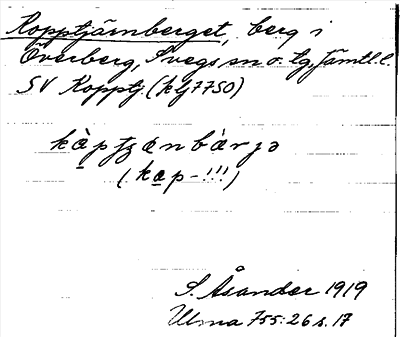 Kopptjärnberget, berg i
Överberg, Svegs sn o. tg, Jämtl.l.
SV Kopptj. (klj 7750)
kàpt̮ʒænbàrjə
(kap-!!!)
S. Åsander 1919
Ulma 755:26 s. 17